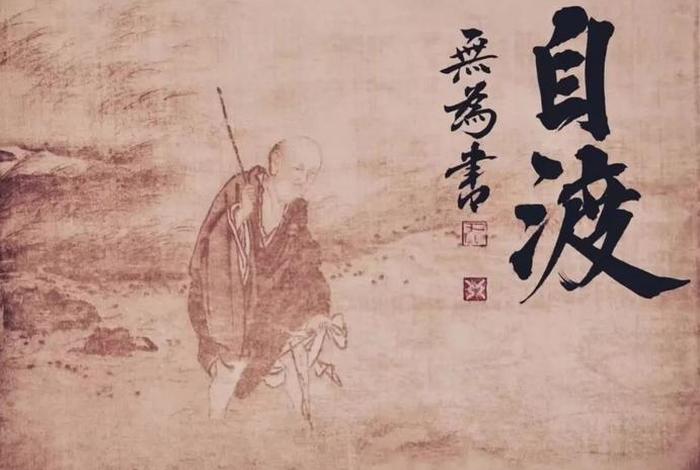 自渡
無為書